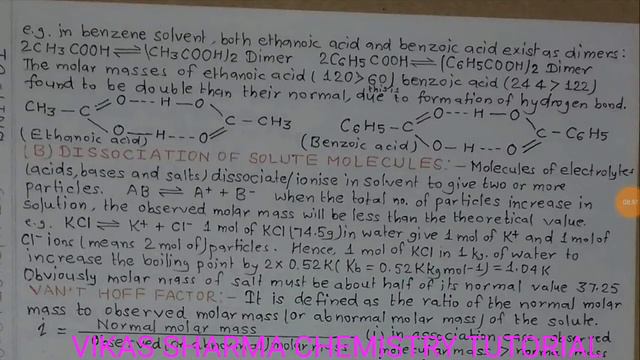 e.g. in benzene solvent, both ethanoic acid and benzoic acid exist as dimers:
2CH3COOH⇌(CH3COOH)2 Dimer 2C6H5COOH⇌(C6H5COOH)2 Dimer
The molar masses of ethanoic acid (120>60) benzoic acid (244>122)
found to be double than their normal, this is due to formation of hydrogen bond.
CH3-C O---H-O C-CH3 C6H5-C O---H-O C-C6H5
O-H---O O-H---O
(Ethanoic acid) (Benzoic acid)
(B) DISSOCIATION OF SOLUTE MOLECULES:- Molecules of electrolytes
(acids, bases and salts) dissociate/ionise in solvent to give two or more
particles. AB ⇌ A+ + B- when the total no. of particles increase in
solution, the observed molar mass will be less than the theoretical value.
e.g. KCl ⇌ K+ + Cl- 1 mol of KCl (74.5g) in water give 1 mol of K+ and 1 mol of
Cl- ions (means 2 mol of) particles. Hence, 1 mol of KCl in 1 kg. of water to
increase the boiling point by 2 x 0.52K (Kb = 0.52K kg mol-1) = 1.04K
Obviously molar mass of salt must be about half of its normal value 37.25
VAN'T HOFF FACTOR:- It is defined as the ratio of the normal molar
mass to observed molar mass (or abnormal molar mass) of the solute.
i = Normal molar mass (i) in association
08:57
VIKAS SHARMA CHEMISTRY TUTORIAL